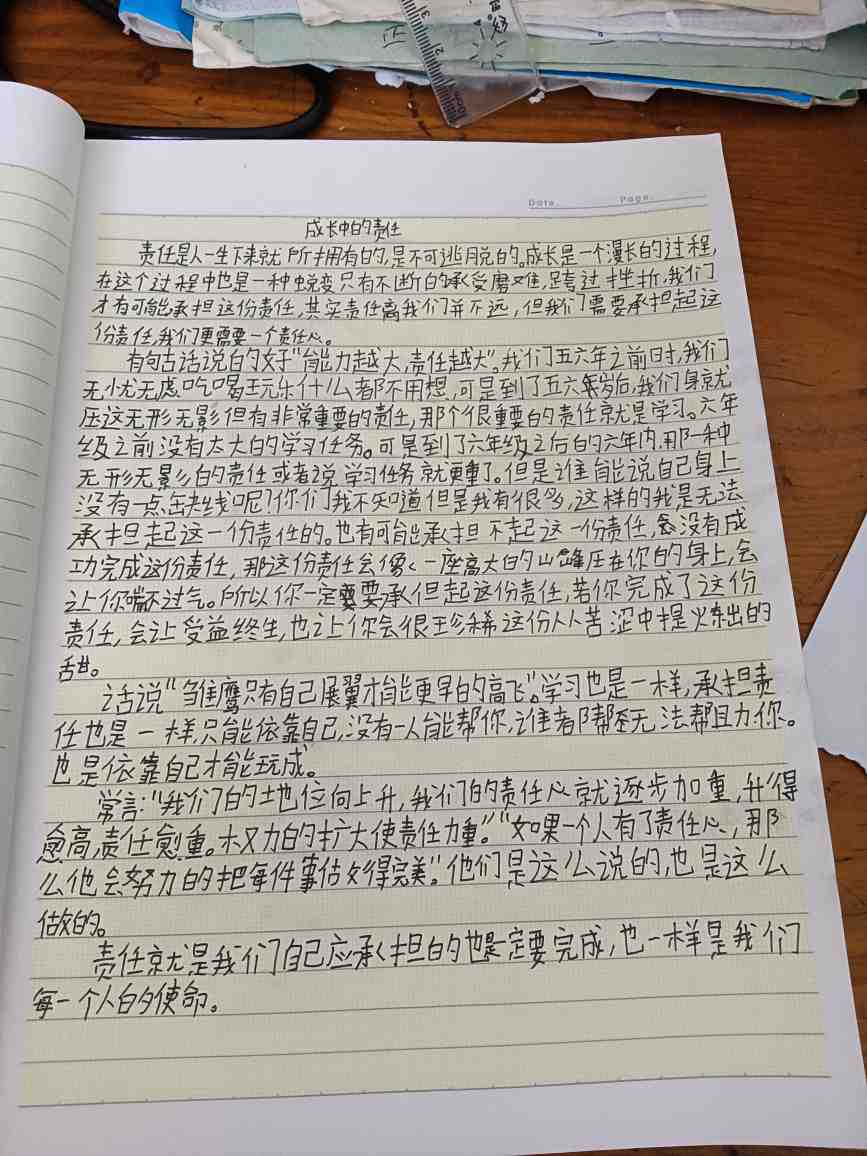 Date.　Page.
成长中的责任
责任是人一生下来就所拥有的,是不可逃脱的。成长是一个漫长的过程,
在这个过程中也是一种蜕变只有不断的承受磨难,跨过挫折,我们
才有可能承担这份责任,其实责任离我们并不远,但我们需要承担起这
份责任,我们更需要一个责任心。
有句古话说的好"能力越大,责任越大"。我们五六年之前时,我们
无忧无虑吃喝玩乐什么都不用想,可是到了五六年岁后,我们身就
压这无形无影但有非常重要的责任,那个很重要的责任就是学习。六年
级之前没有太大的学习任务。可是到了六年级之后的六年内,那一种
无形无影的责任或者说学习任务就更重了。但是谁能说自己身上
没有一点缺线呢?你们我不知道但是我有很多,这样的我是无法
承担起这一份责任的。也有可能承担不起这一份责任,没有成
功完成这份责任,那这份责任会像一座高大的山峰压在你的身上,会
让你喘不过气。所以你一定要承但起这份责任,若你完成了这份
责任,会让受益终生,也让你会很珍稀这份从苦涩中提炼出的
甜。
话说"雏鹰只有自己展翼才能更早的高飞"。学习也是一样,承担责
任也是一样,只能依靠自己,没有一人能帮你,谁都帮无法帮助你。
也是依靠自己才能玩成。
常言:"我们的地位向上升,我们的责任心就逐步加重,升得
愈高,责任愈重。权力的扩大使责任力重"。"如果一个人有了责任心,那
么他会努力的把每件事估好得完美"。他们是这么说的,也是这么
做的。
责任就是我们自己应承担的也是一定要完成,也一样是我们
每一个人的使命。